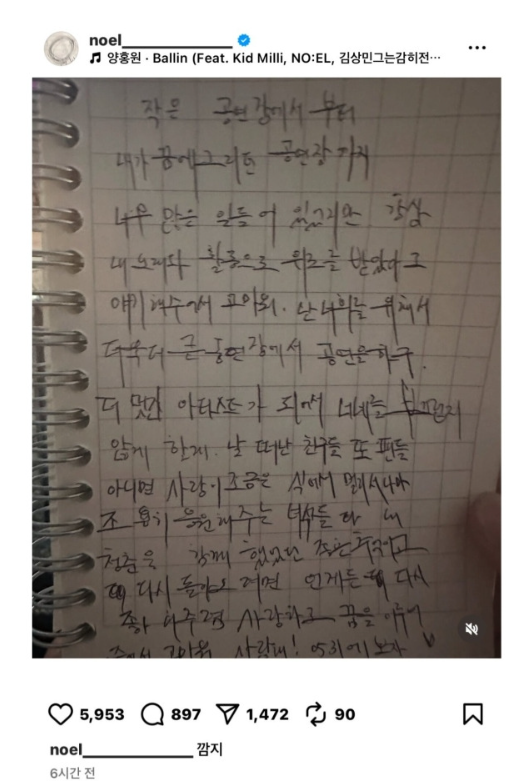 noel_____________
양홍원 · Ballin (Feat. Kid Milli, NO:EL, 김상민그는감히전…
작은 공연장에서 부터
내가 꿈에그리던 공연장 까지
너무 많은 일들이 있었지만 항상
내 노래와 활동으로 위로를 받았다고
얘기해주어서 고마워. 난 너희를 위해서
더욱더 큰 공연장에서 공연을하구.
더 멋진 아티스트가 되어서 너네를
않게 할게. 날 떠난 친구들 또 팬들
아니면 사랑이 조금은 식어서 멀리서나마
조용히 응원해주는 녀석들 다 내
청춘을 함께 했었던 추억이고
다시 돌아오려면 언제든 다시
좋아해주렴 사랑하고 꿈을 이루어
주어서 고마워 사랑해! 0531에보자
5,953
897
1,472
90
noel_____________ 깜지
6시간 전